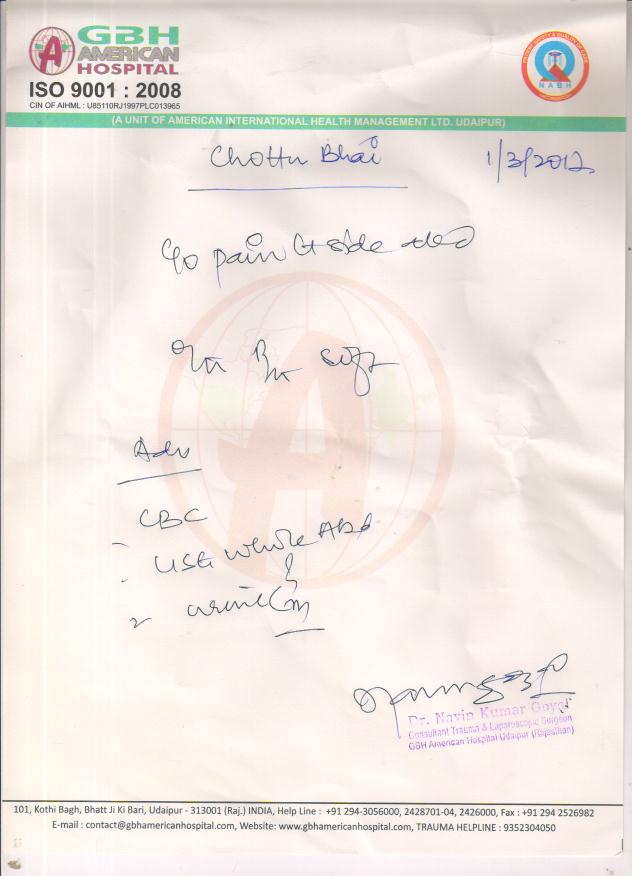 GBH
AMERICAN
HOSPITAL
ISO 9001 : 2008
CIN OF AIHML : U85110RJ1997PLC013965
PATIENT SAFETY & QUALITY OF CARE
NABH
(A UNIT OF AMERICAN INTERNATIONAL HEALTH MANAGEMENT LTD. UDAIPUR)
Chottu Bhai
1/3/2017
C/o pain Lt side abd
soft
Adv
CBC
USG whole Abd
urine C/m
Dr. Navin Kumar Goyal
Consultant Trauma & Laparoscopic Surgeon
GBH American Hospital Udaipur (Rajasthan)
101, Kothi Bagh, Bhatt Ji Ki Bari, Udaipur - 313001 (Raj.) INDIA, Help Line : +91 294-3056000, 2428701-04, 2426000, Fax : +91 294 2526982
E-mail : contact@gbhamericanhospital.com, Website: www.gbhamericanhospital.com, TRAUMA HELPLINE : 9352304050